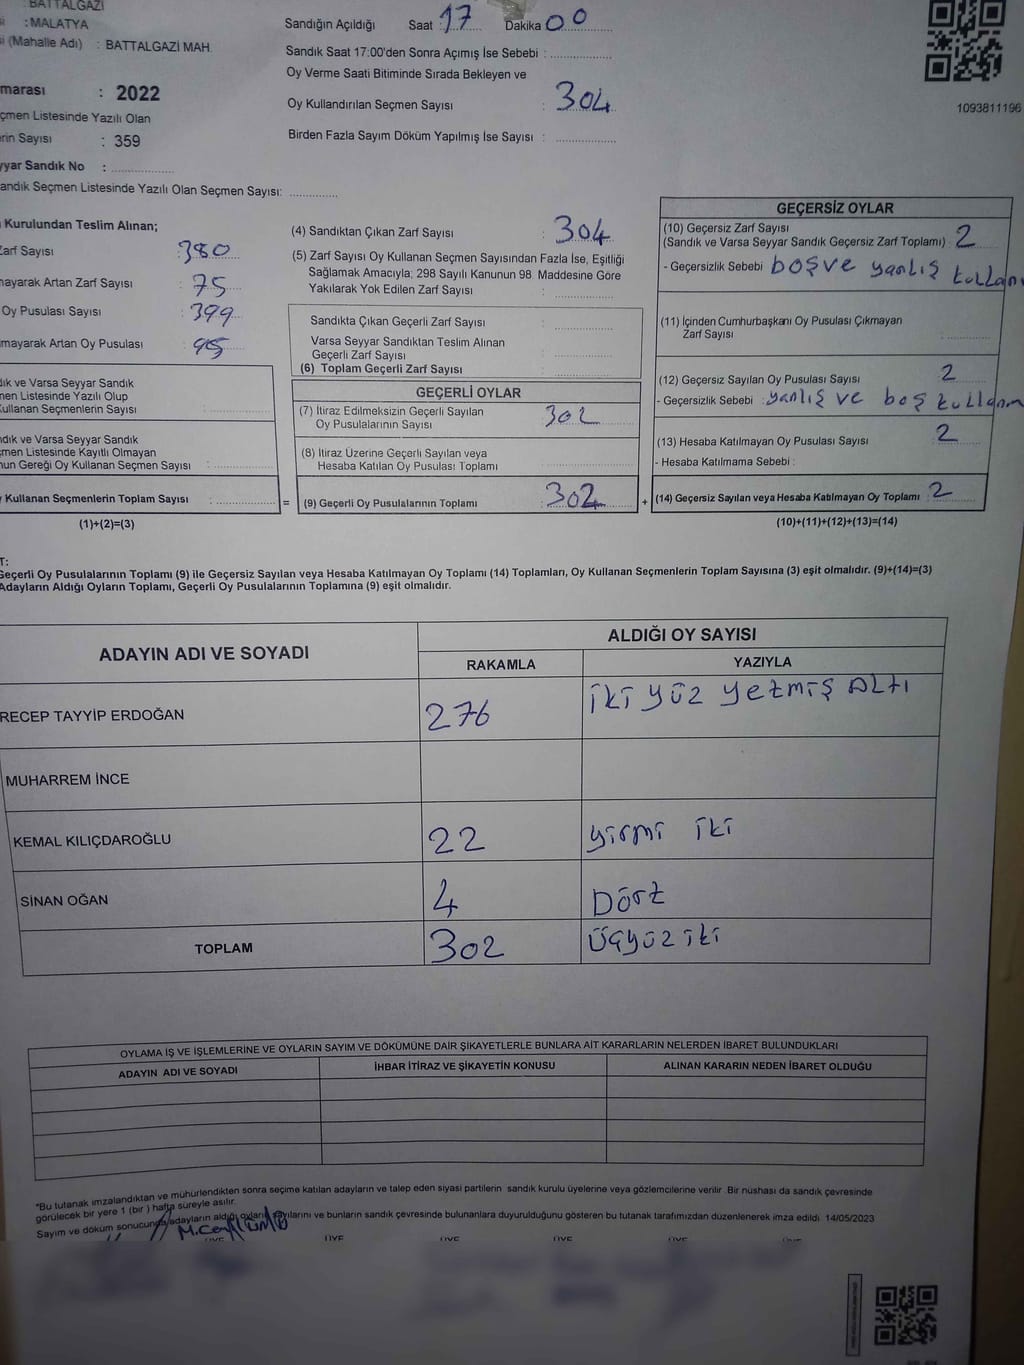 : BATTALGAZİ
: MALATYA
(Mahalle Adı) : BATTALGAZİ MAH.
marası : 2022
çmen Listesinde Yazılı Olan
rin Sayısı : 359
yyar Sandık No :
andık Seçmen Listesinde Yazılı Olan Seçmen Sayısı:
Sandığın Açıldığı Saat : 17 Dakika 00
Sandık Saat 17:00'den Sonra Açımış İse Sebebi :
Oy Verme Saati Bitiminde Sırada Bekleyen ve
Oy Kullandırılan Seçmen Sayısı : 304
Birden Fazla Sayım Döküm Yapılmış İse Sayısı :
1093811196
Kurulundan Teslim Alınan;
Zarf Sayısı : 380
mayarak Artan Zarf Sayısı : 75
Oy Pusulası Sayısı : 399
mayarak Artan Oy Pusulası : 95
dık ve Varsa Seyyar Sandık
men Listesinde Yazılı Olup
ullanan Seçmenlerin Sayısı :
ndık ve Varsa Seyyar Sandık
çmen Listesinde Kayıtlı Olmayan
nun Gereği Oy Kullanan Seçmen Sayısı :
Kullanan Seçmenlerin Toplam Sayısı :
(1)+(2)=(3)
(4) Sandıktan Çıkan Zarf Sayısı : 304
(5) Zarf Sayısı Oy Kullanan Seçmen Sayısından Fazla İse, Eşitliği
Sağlamak Amacıyla; 298 Sayılı Kanunun 98 Maddesine Göre
Yakılarak Yok Edilen Zarf Sayısı :
Sandıkta Çıkan Geçerli Zarf Sayısı :
Varsa Seyyar Sandıktan Teslim Alınan
Geçerli Zarf Sayısı :
(6) Toplam Geçerli Zarf Sayısı :
GEÇERLİ OYLAR
(7) İtiraz Edilmeksizin Geçerli Sayılan
Oy Pusulalarının Sayısı : 302
(8) İtiraz Üzerine Geçerli Sayılan veya
Hesaba Katılan Oy Pusulası Toplamı :
= (9) Geçerli Oy Pusulalarının Toplamı : 302 +
GEÇERSİZ OYLAR
(10) Geçersiz Zarf Sayısı
(Sandık ve Varsa Seyyar Sandık Geçersiz Zarf Toplamı) : 2
- Geçersizlik Sebebi : boş ve yanlış kullanı
(11) İçinden Cumhurbaşkanı Oy Pusulası Çıkmayan
Zarf Sayısı :
(12) Geçersiz Sayılan Oy Pusulası Sayısı : 2
- Geçersizlik Sebebi : yanlış ve boş kullanım
(13) Hesaba Katılmayan Oy Pusulası Sayısı : 2
- Hesaba Katılmama Sebebi :
(14) Geçersiz Sayılan veya Hesaba Katılmayan Oy Toplamı : 2
(10)+(11)+(12)+(13)=(14)
T:
Geçerli Oy Pusulalarının Toplamı (9) ile Geçersiz Sayılan veya Hesaba Katılmayan Oy Toplamı (14) Toplamları, Oy Kullanan Seçmenlerin Toplam Sayısına (3) eşit olmalıdır. (9)+(14)=(3)
Adayların Aldığı Oyların Toplamı, Geçerli Oy Pusulalarının Toplamına (9) eşit olmalıdır.
ADAYIN ADI VE SOYADI
ALDIĞI OY SAYISI
RAKAMLA YAZIYLA
RECEP TAYYİP ERDOĞAN 276 iki yüz yetmiş ALtı
MUHARREM İNCE
KEMAL KILIÇDAROĞLU 22 yirmi iki
SİNAN OĞAN 4 Dört
TOPLAM 302 Üçyüz iki
OYLAMA İŞ VE İŞLEMLERİNE VE OYLARIN SAYIM VE DÖKÜMÜNE DAİR ŞİKAYETLERLE BUNLARA AİT KARARLARIN NELERDEN İBARET BULUNDUKLARI
ADAYIN ADI VE SOYADI İHBAR İTİRAZ VE ŞİKAYETİN KONUSU ALINAN KARARIN NEDEN İBARET OLDUĞU
*Bu tutanak imzalandıktan ve mühürlendikten sonra seçime katılan adayların ve talep eden siyasi partilerin sandık kurulu üyelerine veya gözlemcilerine verilir. Bir nüshası da sandık çevresinde
görülecek bir yere 1 (bir ) hafta süreyle asılır.
Sayım ve döküm sonucunda adayların aldığı oyların sayılarını ve bunların sandık çevresinde bulunanlara duyurulduğunu gösteren bu tutanak tarafımızdan düzenlenerek imza edildi. 14/05/2023
ÜYE ÜYE ÜYE ÜYE ÜYE ÜYE